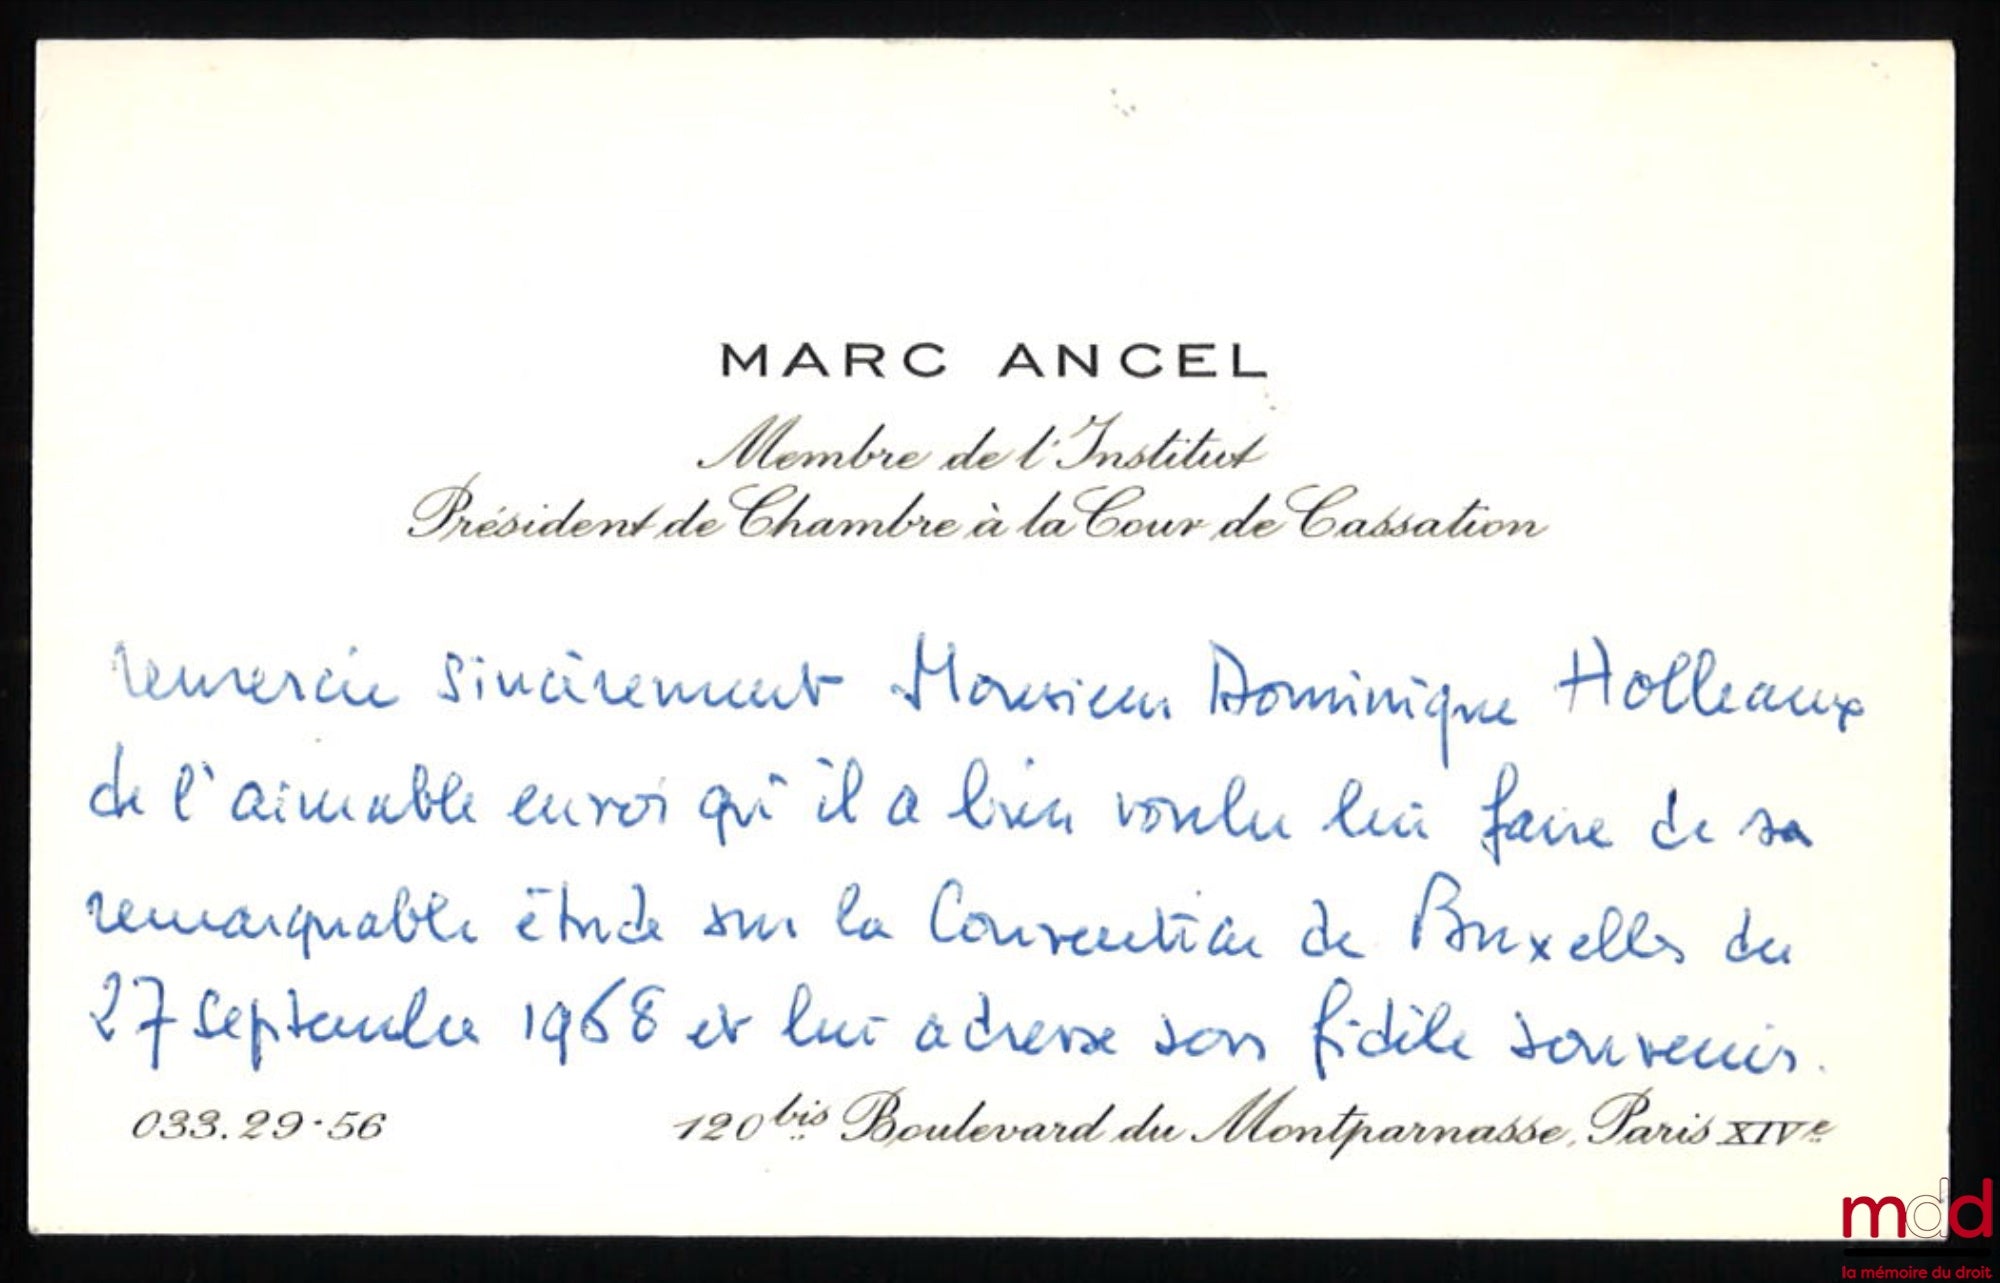 MARC ANCEL
Membre de l'Institut
Président de Chambre à la Cour de Cassation
remercie sincèrement Monsieur Dominique Holleaux
de l'aimable envoi qu'il a bien voulu lui faire de sa
remarquable étude sur la Convention de Bruxelles du
27 septembre 1968 et lui adresse son fidèle souvenir.
033.29.56 120bis Boulevard du Montparnasse, Paris XIVe
mdd
la mémoire du droit